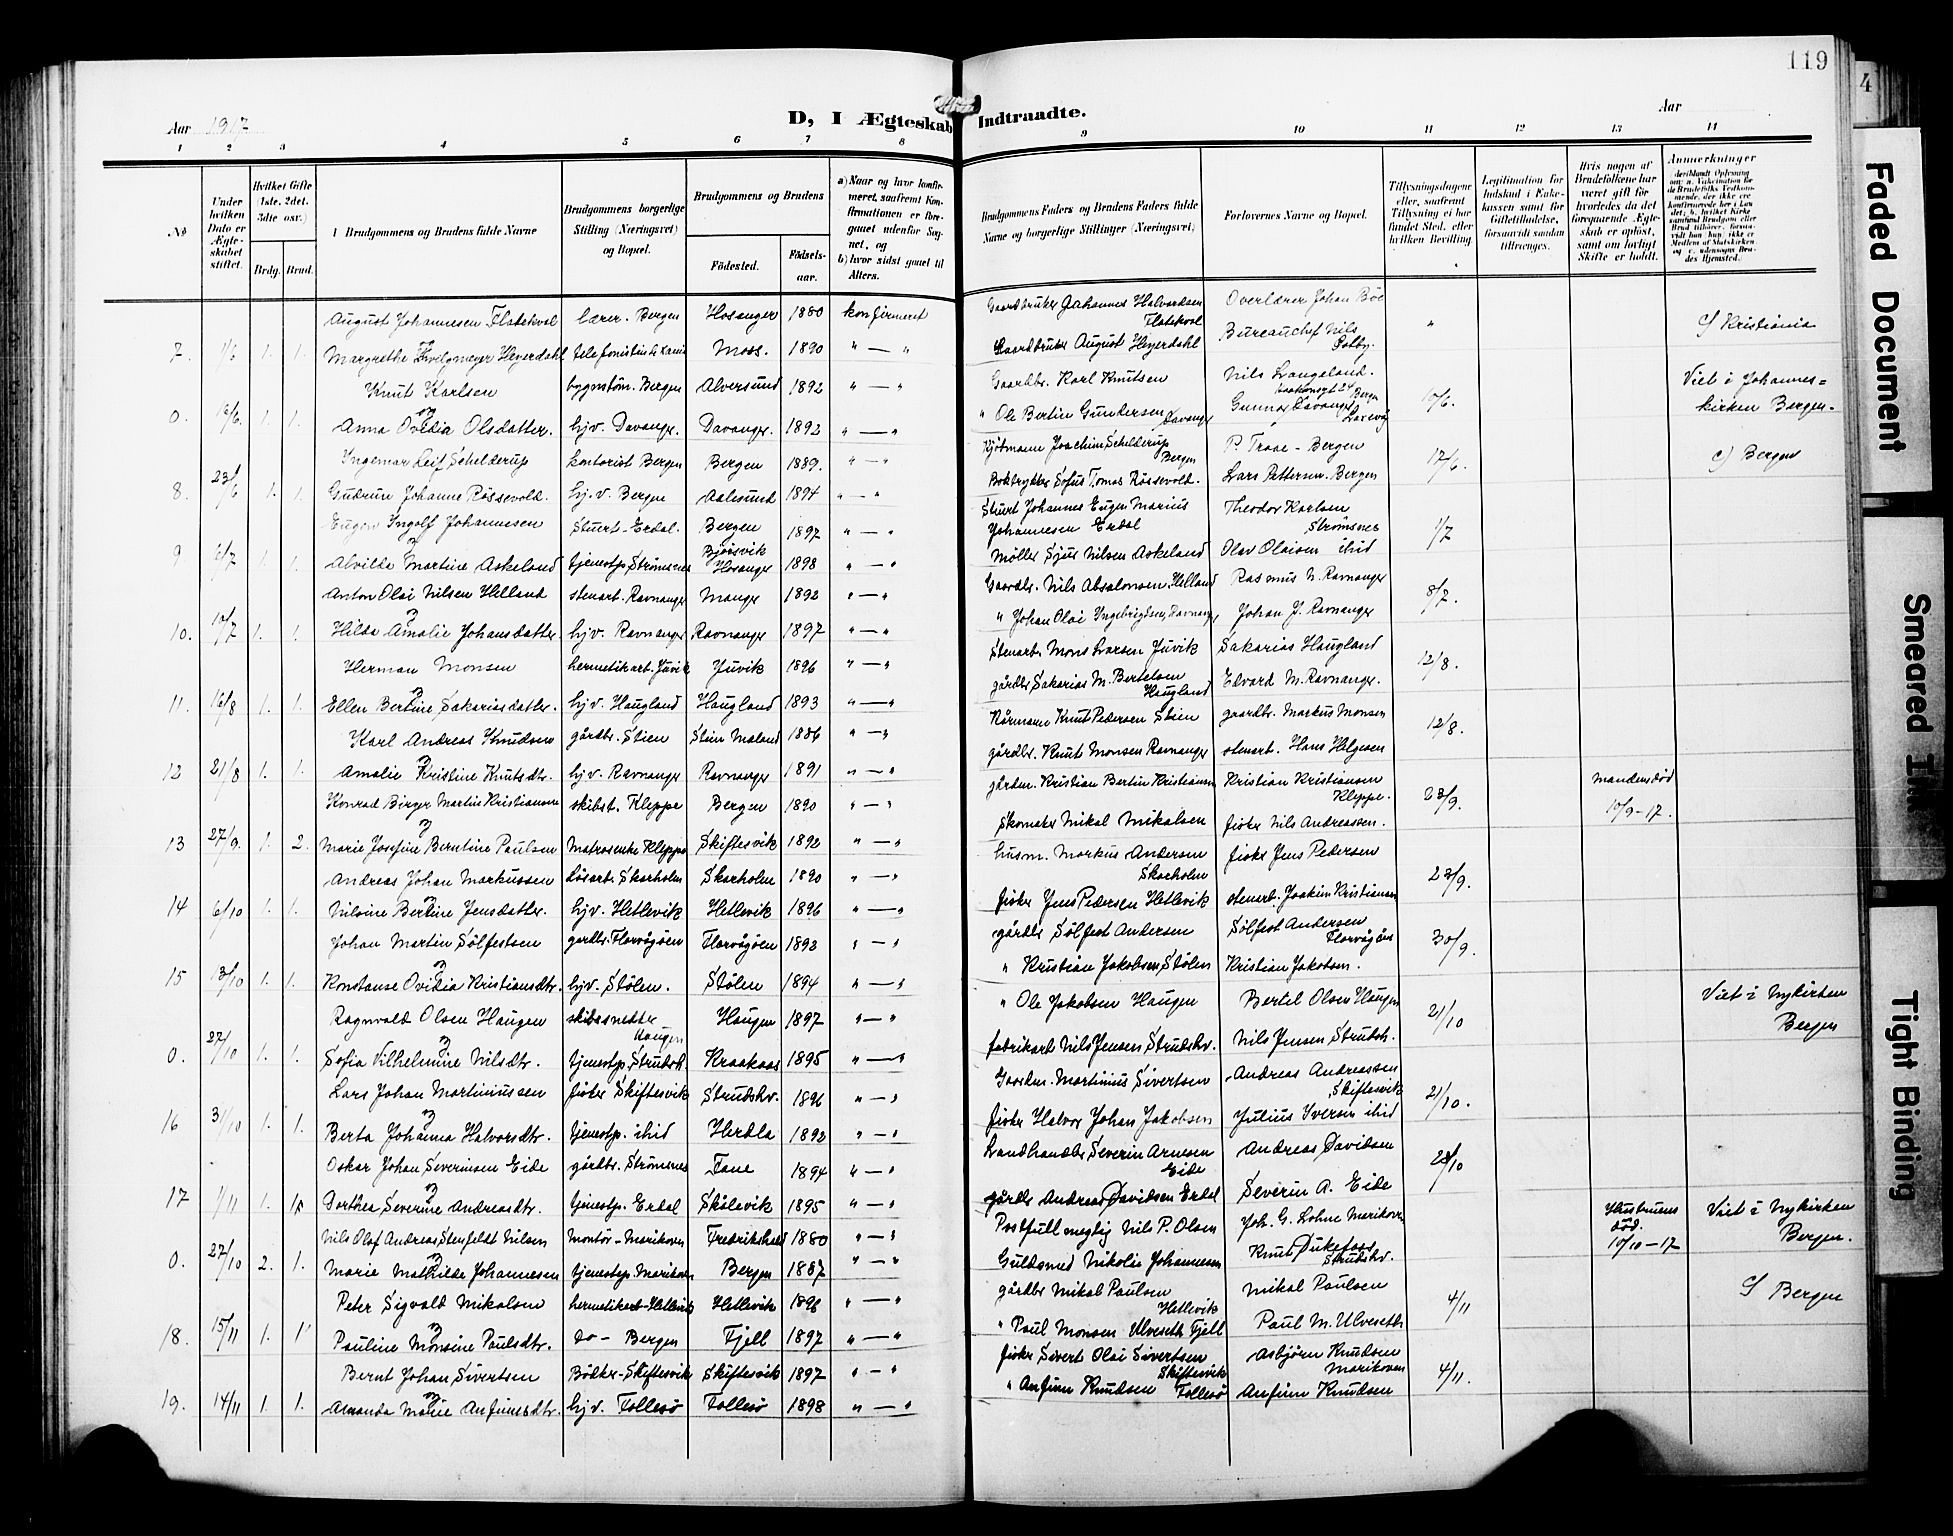 119
4
Aar 1917
D, I Ægteskab Indtraadte.
Aar
1 2 3 4 5 6 7 8 9 10 11 12 13 14
No
Under hvilken Dato er Ægteskabet stiftet.
Hvilket Gifte (1ste, 2det, 3die osv.)
Brdg. Brud.
Brudgommens og Brudens fulde Navne
Brudgommens borgerlige Stilling (Næringsvei) og Bopæl.
Brudgommens og Brudens
Fødested. Fødselsaar.
a) Naar og hvor konfirmeret, saafremt Konfirmationen er foregaaet udenfor Sognet, og
b) hvor sidst gaaet til Alters.
Brudgommens Faders og Brudens Faders fulde Navne og borgerlige Stillinger (Næringsvei)
Forlovernes Navne og Bopæl.
Tillysningsdagene eller, saafremt Tillysning ei har fundet Sted, efter hvilken Bevilling.
Legitimation for Indskud i Enkekassen samt for Giftetilladelse, forsaavidt saadan tiltrænges.
Hvis nogen af Brudefolkene har været gift før hvorledes da det foregaaende Ægteskab er opløst, samt om lovligt Skifte er holdt.
Anmerkninger
August Johannesen Flatekval lærer. Bergen Hosanger 1880 konfirmeret Gaardbruker Johannes Halvordsen Flatekval Overlærer Johan Bøe " Kristiania
7. 1/6 1. 1. Margrethe Heyerdahl Moss. 1890 " — " Gaardbruker August Heyerdahl Bureauchef Nils
Knut Karlsen Bergen Alversund 1892 " — " Gaardbr. Karl Knutsen Nils Langeland. Bergen 10/6. Viet i Johannes=
0. 16/6. 1. 1. Anna Ovidia Olsdatter. hjv. Davanger. Davanger. 1892 " — " " Ole Bertin Gundersen Davanger Gunnar Davanger kirken Bergen.
Ingemar Leif Schelderup kontorist Bergen Bergen 1889. " — " Kjøbmann Joachim Schelderup Bergen P. Traae - Bergen 17/6. Bergen
8. 23/6 1. 1. Gudrun Johanne Røssevold. hjv. Bergen Aalesund 1894 " — " Boktrykker Sofus Tomas Røssevold. Lars Pettersen. Bergen
Eugen Ingolf Johannesen Stuert - Erdal. Bergen 1897 " — " Stuert Johannes Eugen Marius Johannesen Erdal Theodor Karlsen Strømsnes 1/7
9 6/7 1. 1. Alvilde Martine Askeland tjenestp. Strømsnes Bjørsvik Hosanger 1898 " — " Møller Sjur Nilsen Askeland Olav Olaisen ibid
Anton Olai Nilsen Helland stenarb. Ravnanger Manger 1892 " — " Gaardbr. Nils Absalonsen. Helland Rasmus N. Ravnanger 8/7.
10. 10/7 1. 1. Hilda Amalie Johansdatter hjv. Ravnanger Ravnanger 1897 " — " " Johan Olai Ingebrigtsen, Ravnanger Johan J. Ravnanger
Herman Monsen hermetikarb. Juvik Juvik 1896 " — " Stenarb. Mons Larsen Juvik Sakarias Haugland 12/8.
11. 16/8 1. 1. Ellen Bertine Sakariasdatter. hjv. Haugland Haugland 1893 " — " gårdbr. Sakarias M. Bertelsen Haugland Edvard M. Ravnanger.
Karl Andreas Knudsen gårdbr. Stien Stien Meland 1886 " — " Kårmann Knut Pedersen Stien gaardbr. Markus Monsen 12/8.
12 21/8 1. 1. Amalie Kristine Knutsdtr. hjv. Ravnanger Ravnanger 1891 " — " gårdbr. Knut Monsen Ravnanger stenarb. Hans Helgesen
Konrad Birger Martin Kristiansen skibst. Kleppe Bergen 1890 " — " gårdm. Kristian Bertin Kristiansen Kristian Kristiansen Kleppe. 23/9. mandens død 10/9 - 17.
13 27/9. 1. 2. Marie Josefine Berntine Paulsen Matrosenke Kleppe Skiftesvik 1892 " — " Skomaker Mikal Mikalsen fisker Nils Andreassen.
Andreas Johan Markussen Løsarb. Skarholm Skarholm 1890 " — " husm. Markus Andersen Skarholm fisker Jens Pedersen 23/9.
14 6/10 1. 1. Nilsine Bertine Jensdatter. hjv. Hetlevik Hetlevik 1896 " — " fisker Jens Pedersen Hetlevik stenarb. Joakim Kristiansen
Johan Martin Sølfestsen gardbr. Florvågøen Florvågøen 1893 " — " gårdbr Sølfest Andersen Sølfest Andersen Florvågøen 30/9.
15 13/10 1. 1. Konstanse Ovidia Kristiansdtr. hjv. Stølen. Stølen 1894 " — " " Kristian Jakobsen, Stølen Kristian Jakobsen.
Ragnvald Olsen Haugen skibssnedker Haugen Haugen 1897 " — " " Ole Jakobsen Haugen Bertel Olsen Haugen 21/10 Viet i Nykirken
0. 27/10 1. 1. Sofia Vilhelmine Nilsdtr. tjenestp. Strudsh. Kraakaas 1895 " — " fabrikarb Nils Jensen Strudshv. Nils Jensen Strudsh. Bergen
Lars Johan Martiniussen fisker Skiftesvik Strudshv. 1896 " — " Gaardm. Martinius Sivertsen Andreas Andreassen Skiftesvik 21/10.
16 31/10 1. 1. Berta Johanna Halvorsdtr. tjenestp. ibid Herdla 1892 " — " fisker Halvor Johan Jakobsen Julius Iversen ibid
Oskar Johan Severinsen Eide gårdbr. Strømsnes Fane 1894 " — " Landhandler Severin Arnesen Eide Andreas Davidsen 28/10
17 1/11 1. Dorthea Severine Andreasdtr. tjenestp. Erdal Skålevik 1895 " — " gårdbr Andreas Davidsen Erdal Severin A. Eide
Nils Olaf Andreas Stenfeldt Nilsen Montør - Marikoven Fredrikshald 1880 " — " Postfullmegtig Nils P. Olsen Joh. G. Lohne Marikoven Hustruens død. 10/10 - 17 Viet i Nykirken
0. 27/10 2. 1. Marie Mathilde Johannesen tjenestep. Marikoven Bergen 1887 " — " Guldsmed Nikolai Johannesen Knut Dukefoss Strudshv. Bergen.
Peter Sigvald Mikalsen hermetikarb - Hetlevik Hetlevik 1896 " — " gårdbr Mikal Paulsen Hetlevik Mikal Paulsen 4/11 Bergen
18. 15/11 1. 1 Pauline Monsine Paulsdtr. do - Bergen Fjell 1897 " — " " Paul Monsen Ulveseth Fjell Paul M. Ulveseth
Bernt Johan Sivertsen Bødker - Skiftesvik Skiftesvik 1897 " — " fisker Sivert Olai Sivertsen Skiftesvik Asbjørn Knudsen Marikoven 4/11.
19. 14/11 1. 1. Amanda Marie Anfinnsdtr. hjv. Follesø Follesø 1898 " — " " Anfinn Knudsen Follesø Anfinn Knudsen
Faded Document
Smeared Ink
Tight Binding